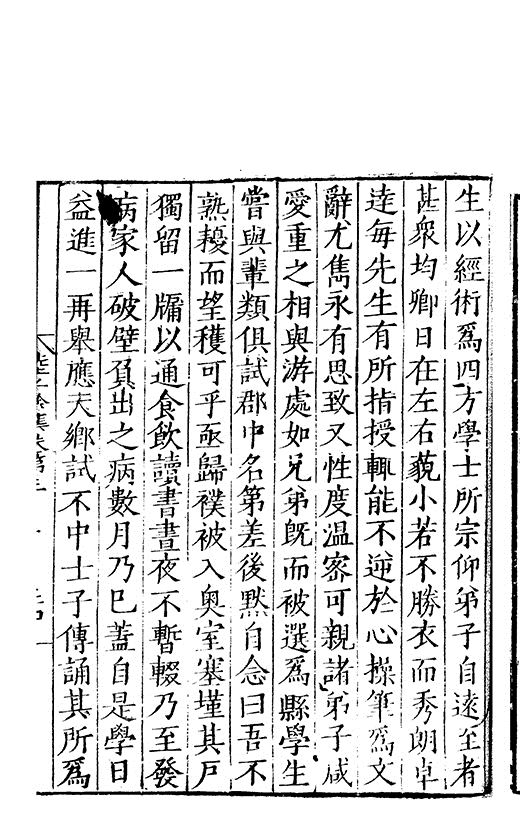 生以經術爲四方學士所宗仰弟子自遠至者
甚衆均卿日在左右藐小若不勝衣而秀朗卓
逹每先生有所指授輒能不逆於心操筆爲文
辭尤雋永有思致又性度温宻可親諸弟子咸
愛重之相與游處如兄弟既而被選爲縣學生
嘗與輩類俱試郡中名第差後黙自念曰吾不
熟耰而望穫可乎亟歸襆被入奥室塞墐其戸
獨留一牖以通食飲讀書晝夜不暫輟乃至發
病家人破壁負出之病數月乃已蓋自是學日
益進一再舉應天鄉試不中士子傳誦其所爲